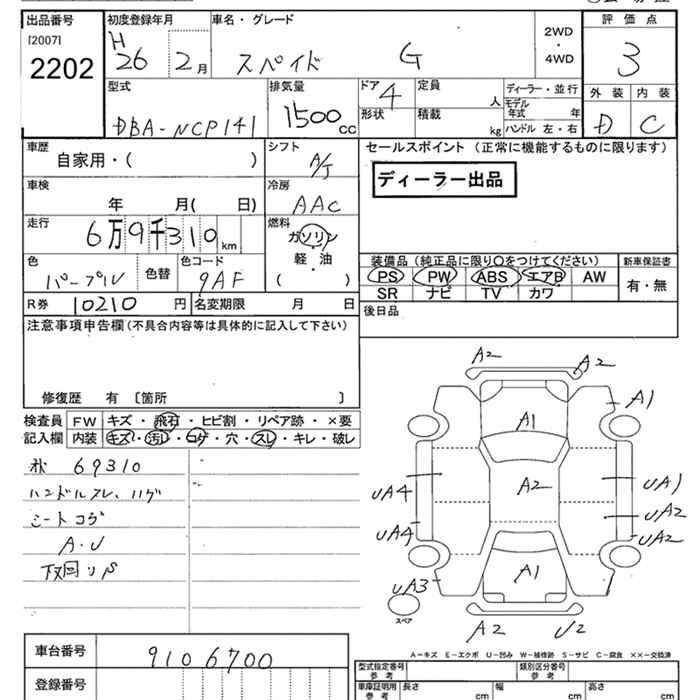 出品番号
[2007]
2202
初度登録年月
H
26 2月
車名・グレード
スペイド G
2WD
・
4WD
評価点
3
外装 内装
D C
型式
DBA-NCP141
排気量
1500cc
ドア 4
形状
定員 人
積載 kg
ディーラー・並行
モデル年式 年
ハンドル 左・右
車歴
自家用・( )
シフト
A/T
車検
年 月( 日)
冷房
AAC
走行
6万9千310km
燃料
ガソリン
・
軽油
・
( )
色
パープル
色替
色コード
9AF
R券 10210円
名変期限 月 日
セールスポイント (正常に機能するものに限ります)
ディーラー出品
装備品 (純正品に限り○をつけてください)
PS PW ABS エアB AW
SR ナビ TV カワ
新車保証書
有・無
後日品
注意事項申告欄(不具合内容等は具体的に記入して下さい)
修復歴 有 〔箇所 〕
検査員記入欄
FW キズ・飛石・ヒビ割・リペア跡・×要
内装 キズ・汚レ・コゲ・穴・スレ・キレ・破レ
69310
ハンドルスレ、ハゲ
シートコゲ
A・U
下回リS
A2 A2
A1
A1
A2
UA4 UA1
UA2
UA4 UA2
A1
UA3
スペア
A2 U2
A-キズ E-エクボ U-凹み W-補修跡 S-サビ C-腐食 ××-交換済
車台番号
9106700
登録番号
型式指定番号
参考
類別区分番号
参考
車庫証明用
参考
長さ cm
幅 cm
高さ cm